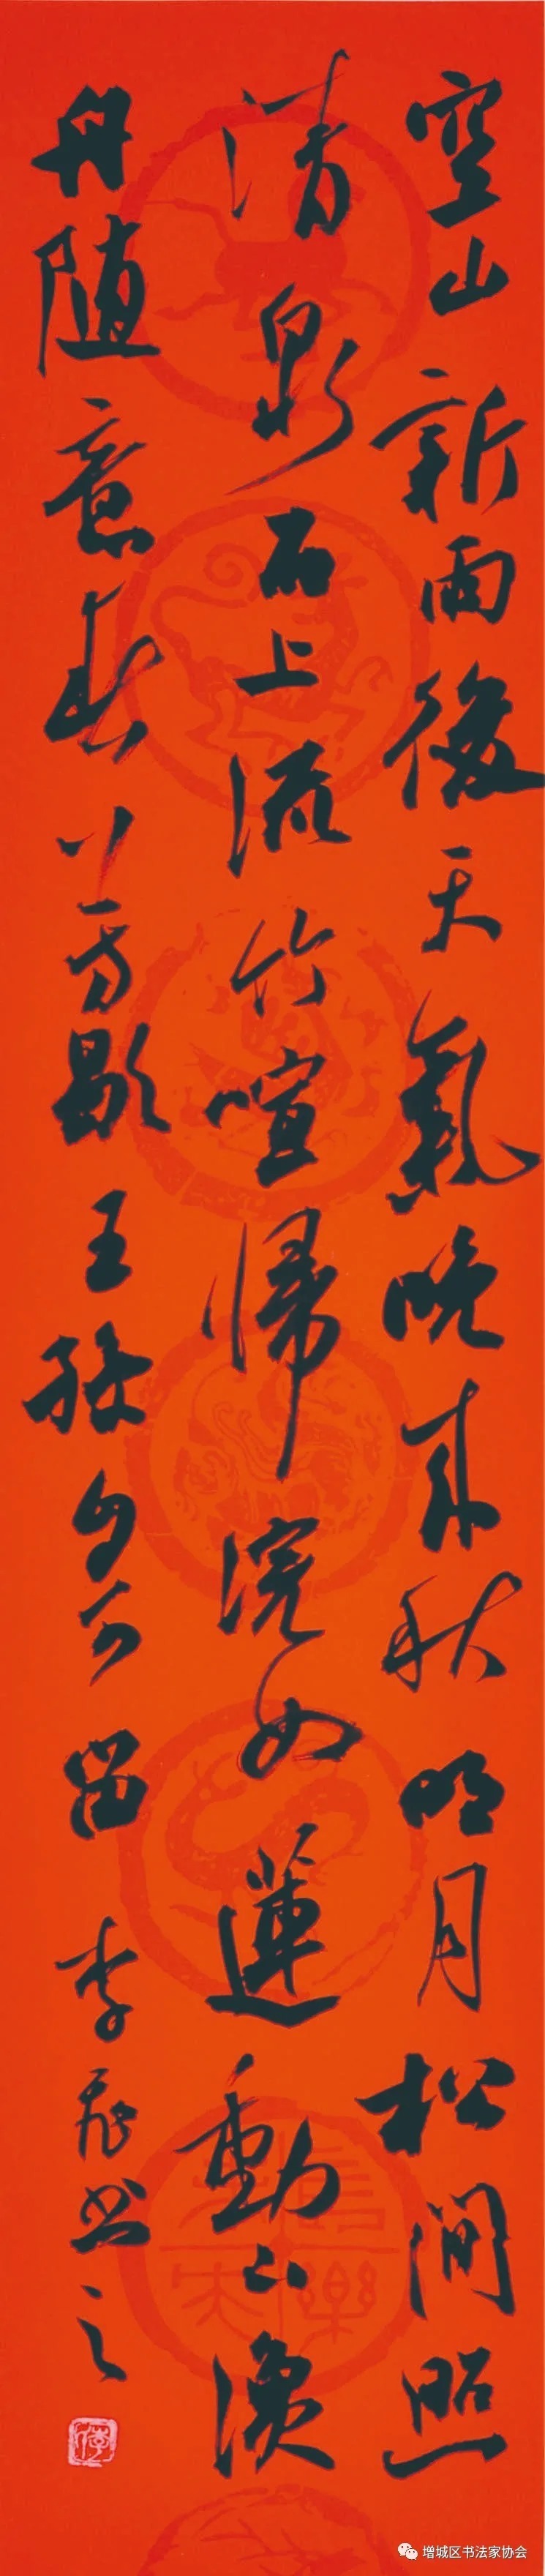 空山新雨後天氣晚來秋明月松間照
清泉石上流竹喧歸浣女蓮動下漁
舟随意春芳歇王孫自可留 李书之
增城区书法家协会